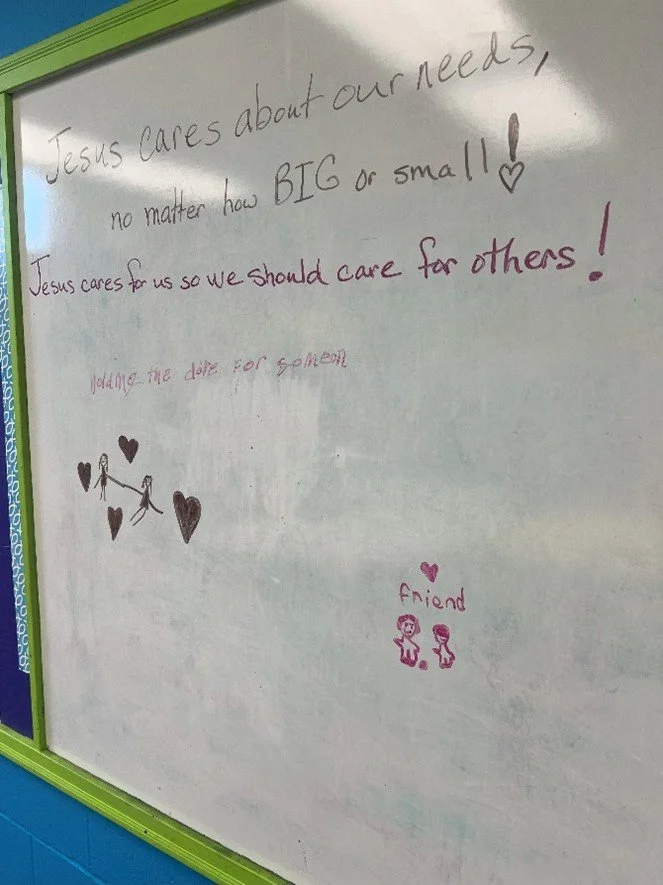 Jesus cares about our needs,
no matter how BIG or small!
Jesus cares for us so we should care for others!
Holding the dore for someon
friend